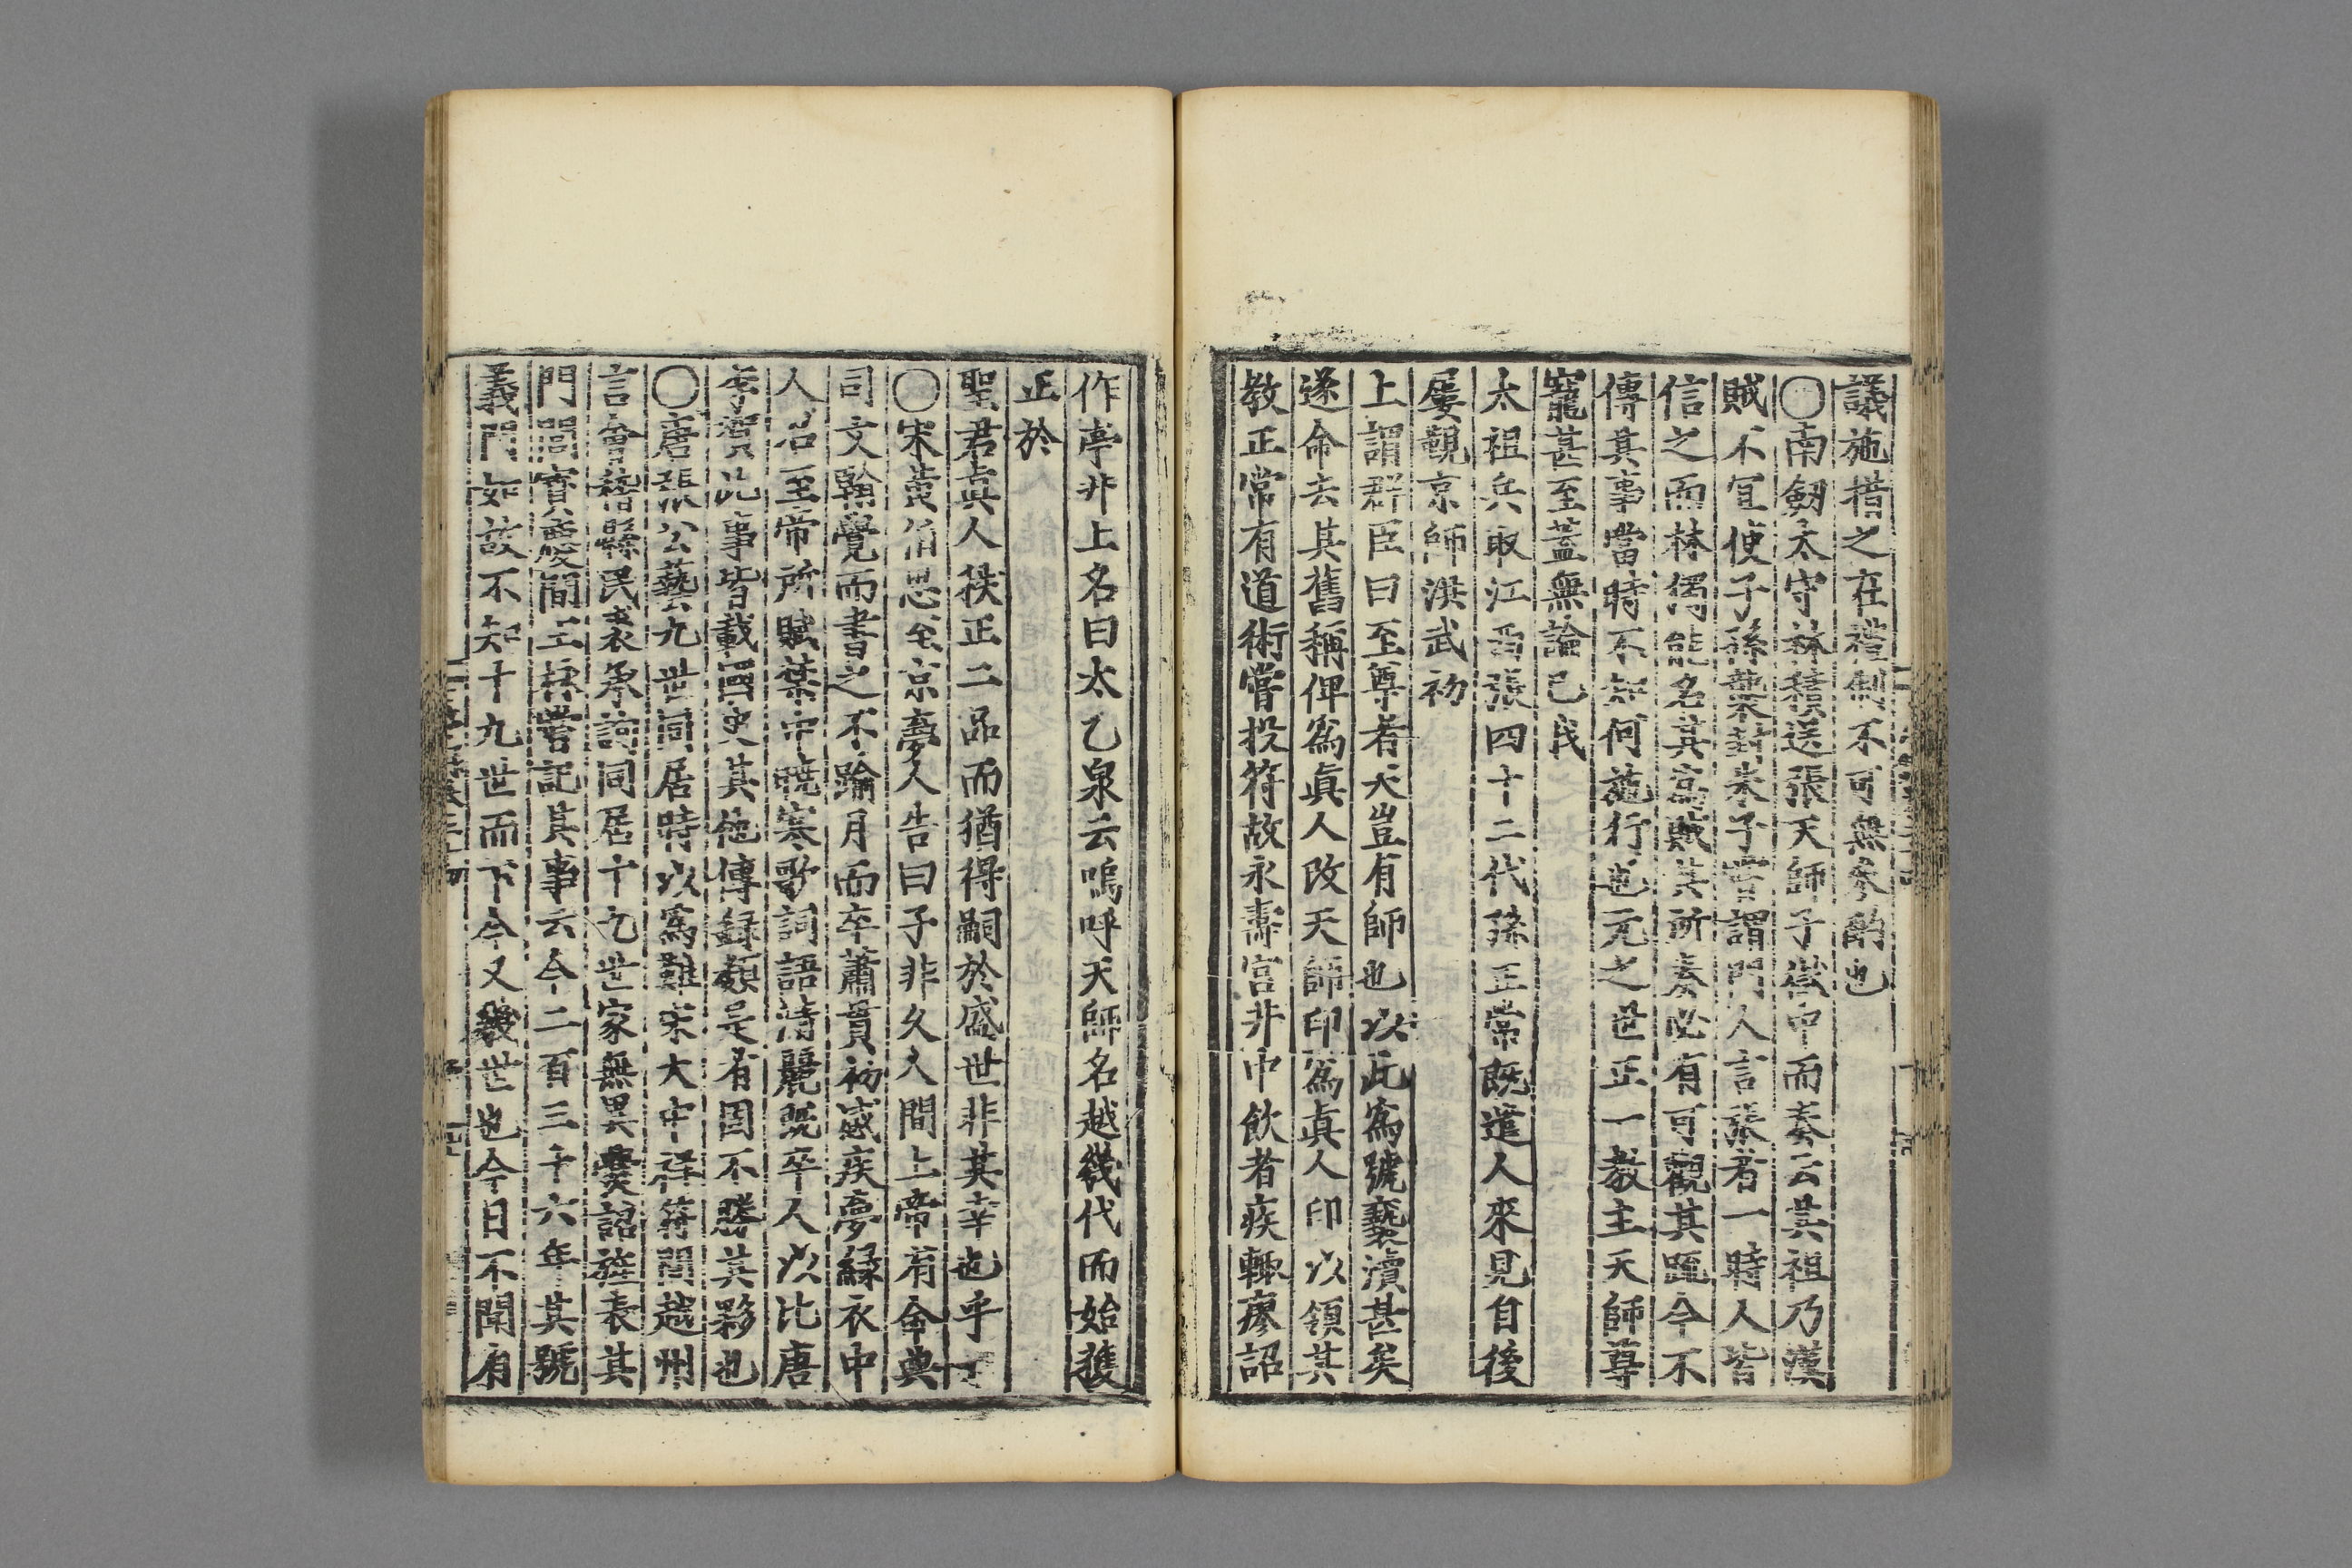 議施措之在禮制不可無參酌也
〇南劔太守林積送張天師子獄中而奏云其祖乃漢
賊不宜使子孫襲封朱子嘗謂門人言張君一時人皆
信之而林獨能名其爲賊其所奏必有可觀其䟽今不
傳其事當時不知何施行也元之世正一教主天師尊
寵甚至蓋無論已我
太祖兵取江西張四十二代孫正常既遣人來見自後
屢覲京師洪武初
上謂群臣曰至尊者天豈有師也以此爲號褻瀆甚矣
遂命去其舊稱俾爲眞人改天師印爲眞人印以領其
教正常有道術嘗投符故永壽宫井中飲者疾輙瘳詔
作亭井上名曰太乙泉云嗚呼天師名越幾代而始獲
正於
聖君眞人秩正二品而猶得嗣於盛世非其幸也乎
〇宋黄伯思在京夢人告曰子非久人間上帝有命典
司文翰覺而書之不踰月而卒蕭貫初感疾夢緑衣中
人召至帝所賦禁中曉寒歌詞語清麗既卒人以比唐
李賀此事皆載國史其他傳録類是者固不勝其夥也
〇唐張公藝九世同居時以爲難宋大中祥符間越州
言會稽縣民裘承詢同居十九世家無異爨詔旌表其
門閭寳慶間王栐嘗記其事云今二百三十六年其號
義門如故不知十九世而下今又幾世也今日不聞有